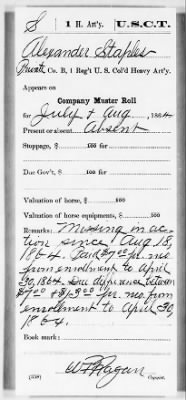 S 1 H. Art'y. U.S.C.T.
Alexander Staples
Private, Co. B, 1 Reg't U. S. Col'd Heavy Art'y.
Appears on
Company Muster Roll
for July & Aug, 1864
Present or absent Absent
Stoppage, $ 100 for
Due Gov't, $ 100 for
Valuation of horse, $ 100
Valuation of horse equipments, $ 100
Remarks: Missing in ac-
tion since Aug 15,
1864. Paid $7.00 pr. mo
from enrollment to April
30, 1864. Due difference between
$7.00 & $13.00 pr. mo from
enrollment to April 30,
1864.
Book mark:
(358) Copyist.